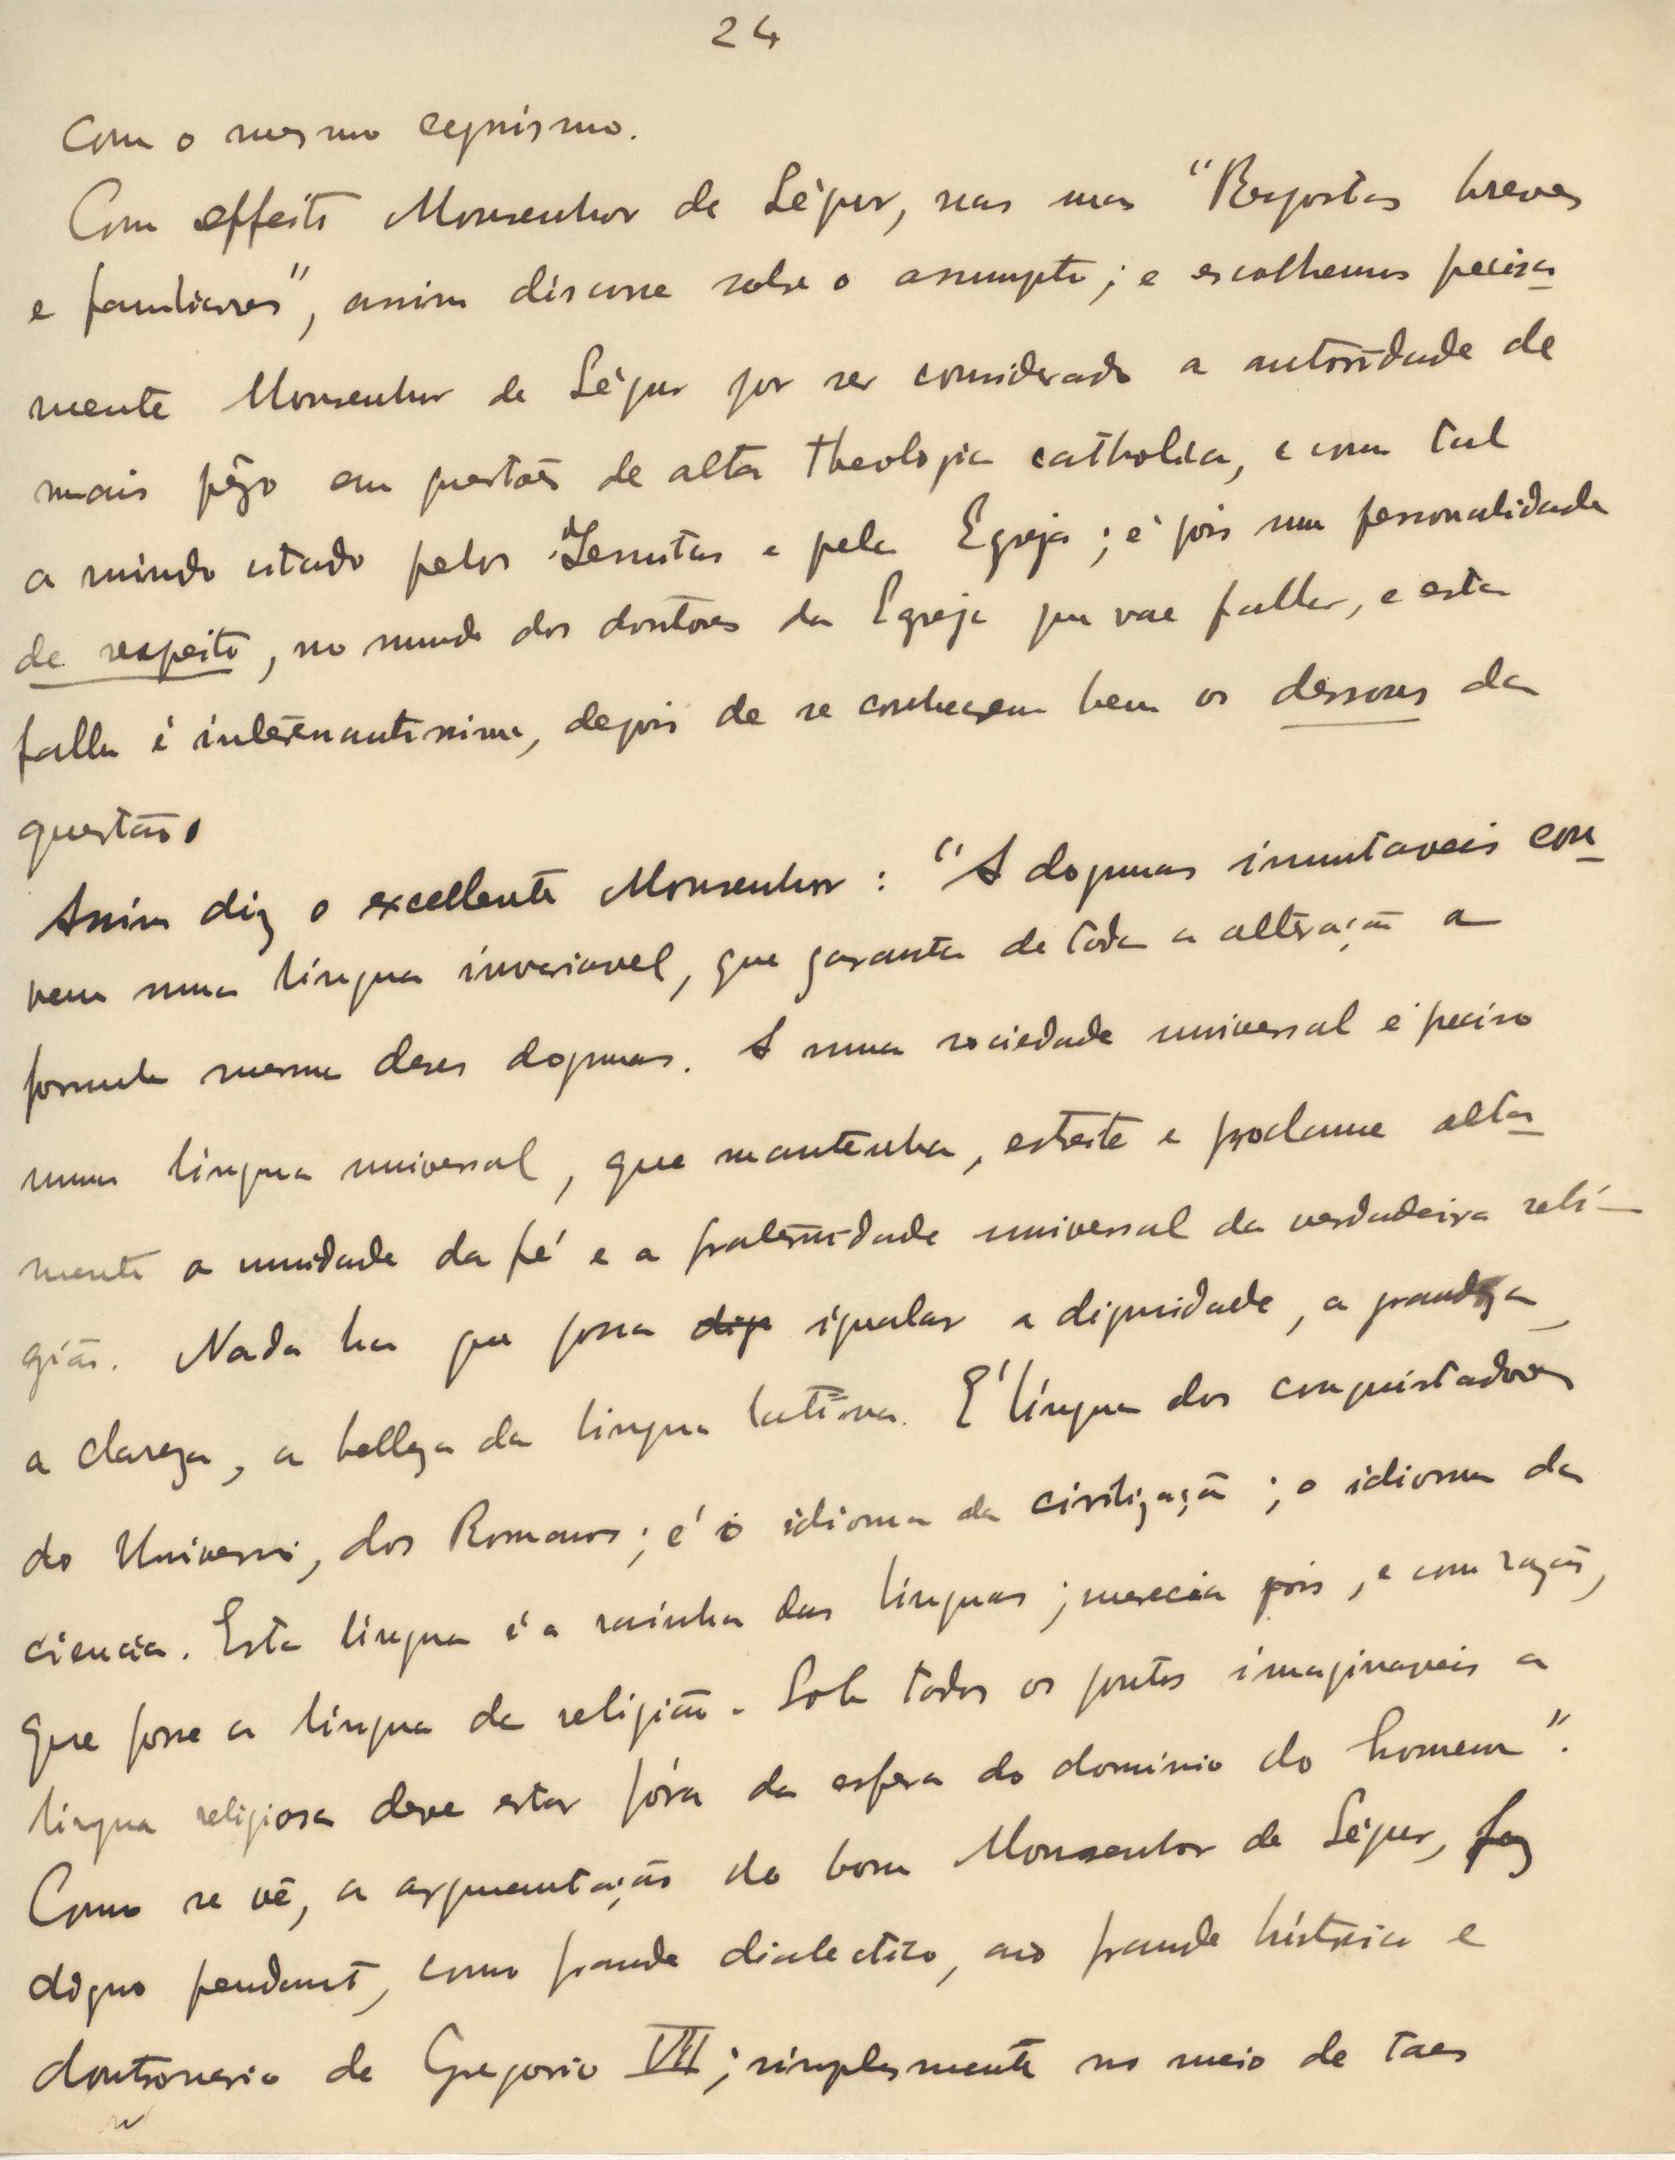 24
Com o mesmo cynismo.
Com effeito Monsenhor de Ségur, nas suas "Respostas breves
e familiares", assim discorre sobre o assumpto; e escolhemos precisa-
mente Monsenhor de Ségur por ser considerado a autoridade de
mais pêzo em questões de alta theologia catholica, e como tal
a miudo citado pelos Jesuitas e pela Egreja; é pois uma personalidade
de respeito, no mundo dos doutores da Egreja que vae fallar, e esta
falla é interessantissima, depois de se conhecerem bem os dessous da
questão.
Assim diz o excellente Monsenhor: "A dogmas immutaveis con-
vem uma lingua invariavel, que garanta de toda a alteração a
formula mesma deses dogmas. A uma sociedade universal é preciso
uma lingua universal, que mantenha, estreite e proclame alta-
mente a unidade da fé e a fraternidade universal da verdadeira reli-
gião. Nada ha que possa dig igualar a dignidade, a grandeza,
a clareza, a belleza da lingua latina. E' lingua dos conquistadores
do Universo, dos Romanos; é o idioma da civilização; o idioma da
ciencia. Esta lingua é a rainha das linguas; merecia pois, e com razão,
que fosse a lingua da religião. Sob todos os pontos imaginaveis a
lingua religiosa deve estar fóra da esfera do dominio do homem".
Como se vê, a argumentação do bom Monsenhor de Ségur, faz
digno pendant, como grande dialectico, ao grande histrião e
doutrinario de Gregorio VII; simplesmente no meio de taes